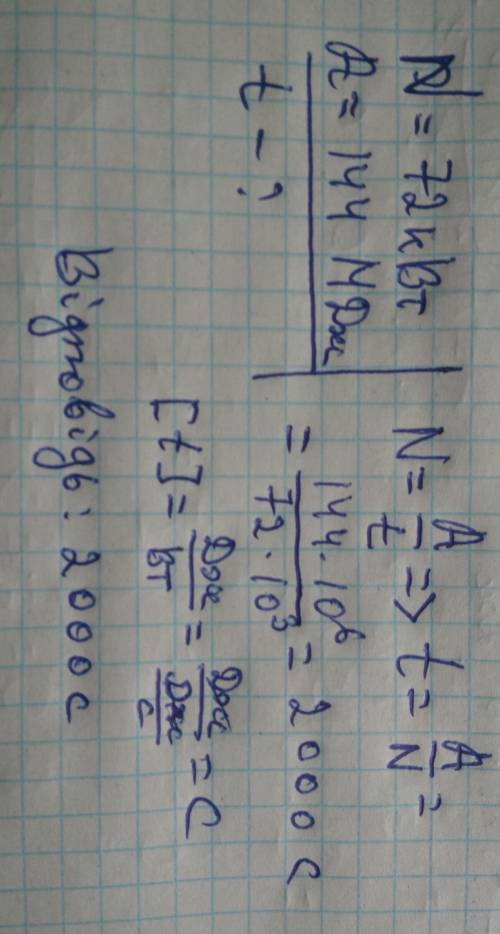 N = 72кВт
A = 144 МДж
t - ?
N = A/t => t = A/N =
= 144·10⁶/72·10³ = 2000 c
[t] = Дж/Вт = Дж/Дж/с = C
Відповідь: 2000 c